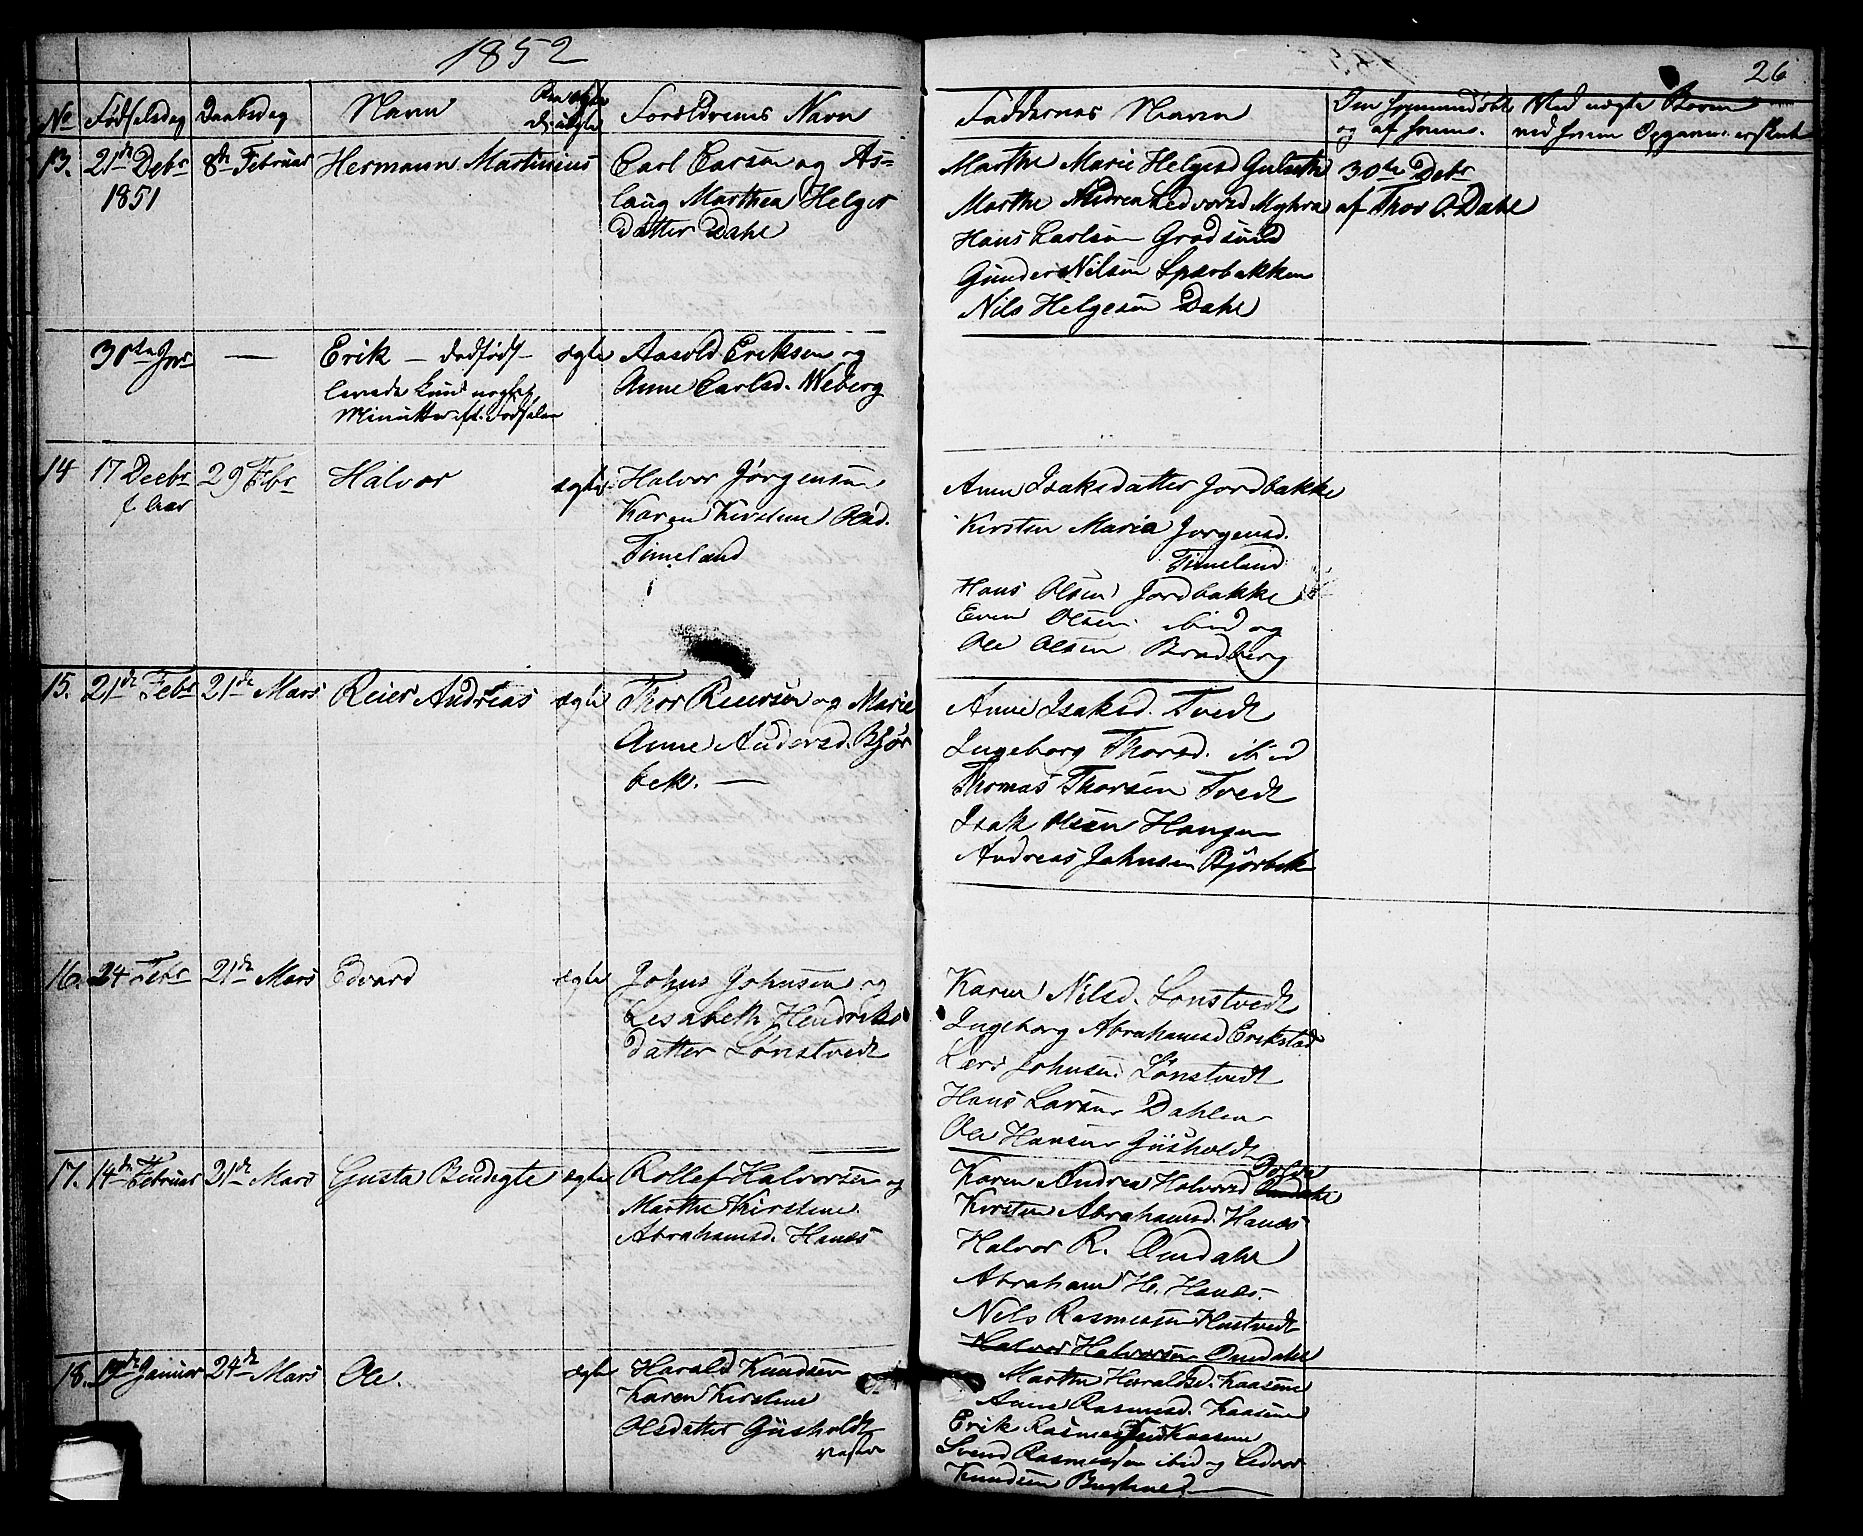 1852
26
No Fødselsdag Daabsdag Navn Forældrenes Navn
Faddernes Navn
og af hvem.
13. 21de Debr 8de Februar Hermann Martinius Carl Carsen og As-
1851 laug Marthea Helges
Datter Dahl
Marthe Marie Helgesd Gulseth 30te Debr
Marthe Andrea Ledvorsd Myhra af Thor O. Dahl
Hans Carlsen Grodsund
Gunder Nilsen Sparbakken
Nils Helgesen Dahl
— Erik — dødfødt — ægte Aasold Eriksen og
levede kund nogle Anne Carlsd. Weberg
Minutter eft. Fødselen
14 17 Decbr 29 Febr Halvor ægte Halvor Jørgensen
f. Aar Karen Kirstine Olsd.
Timeland
Anne Isaksdatter Jordbakke
Kirsten Maria Jørgensd.
Timeland
Hans Olsen Jordbakke
Even Olsen ibid og
Ole Olsen Bradberg
15. 21de Febr 21de Mars Reier Andreas ægte Thor Reiersen og Marie
Anne Andersd. Bjør
bek. —
Anne Isaksd. Tvedt
Ingeborg Thorsd. ibid
Thomas Thorsen Tvedt
Isak Olsen Haugen
Andreas Johnsen Bjørbek
16. 24 Febr 21de Mars Edvard ægte Johns Johnsen og
Lesabeth Hendriks
datter Lønstvedt
Karen Nilsd. Lønstvedt
Ingeborg Abrahamsd Erikstad
Lars Johnsen Lønstvedt
Hans Larsen Dahlen
Ole Hansen Gusholdt
17. 14de Februar 21de Mars Gusta Bendegte ægte Rollef Halvorsen og
Marthe Kirstine
Abrahamsd. Hanes
Karen Andrea Halvorsd Omdahl
Kirsten Abrahamsd. Hanes
Halvor R. Omdahl
Abraham H. Hanes
Nils Rasmusen Hustvedt
Halvor Halvorsen Omdahl
18. 19de Januar 24de Mars Ole. ægte Harald Knudsen
Karen Kirstine
Olsdatter Gusholdt
vestre
Marthe Haraldsd. Kaasene
Anne Rasmusd. Kaasene
Erik Rasmussen Kaasene
Svend Rasmussen ibid og Ledvor
Knudsen